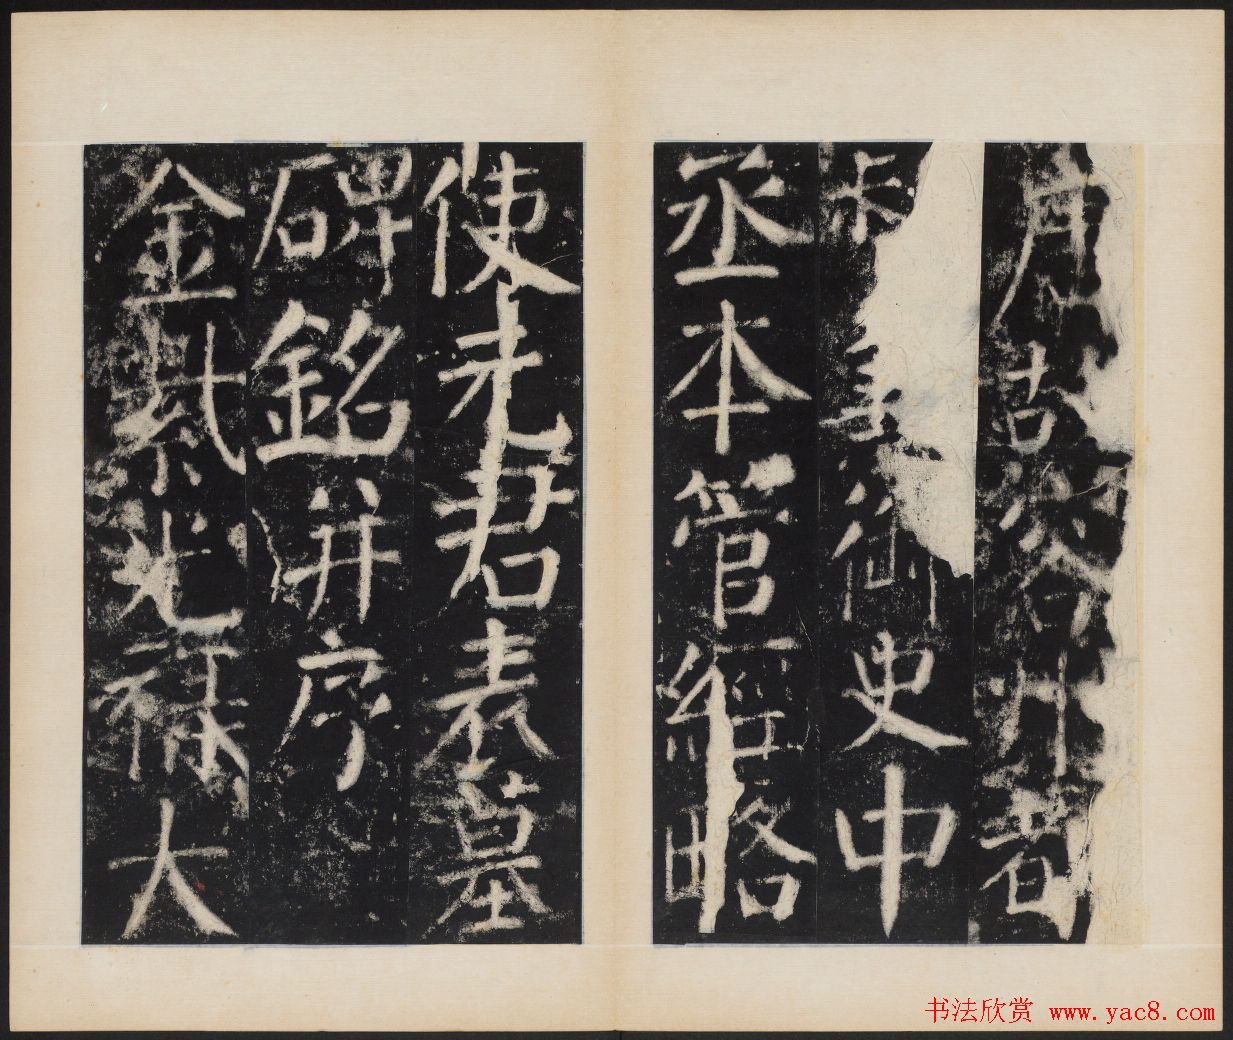 唐故容州都
督兼御史中
丞本管經略
使元君表墓
碑銘并序
金紫光祿大
书法欣赏 www.yac8.com